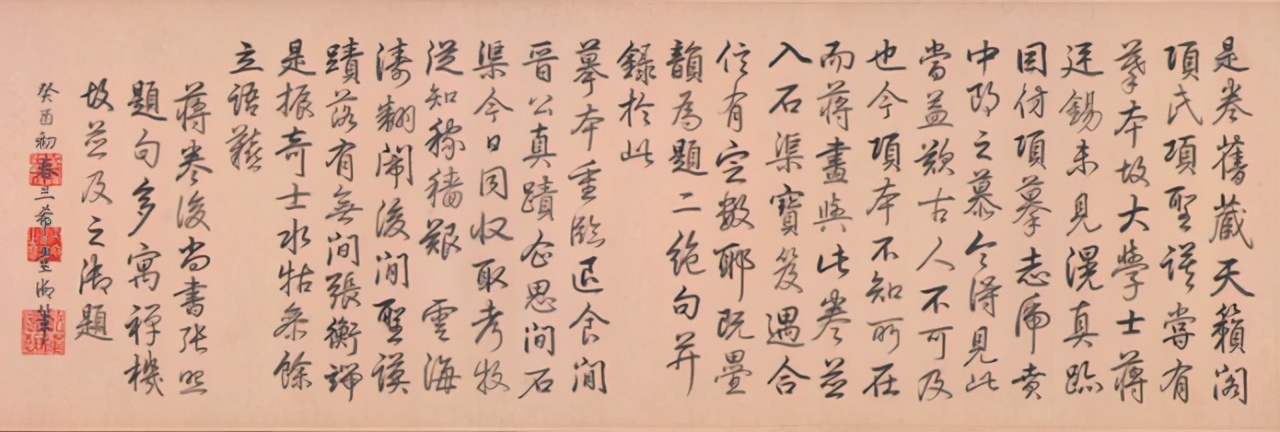 是卷舊藏天籟閣
項氏項聖謨嘗有
摹本故大學士蔣
廷錫未見滉真跡
因仿項摹志虎賁
中郎之慕今得見此
當益歎古人不可及
也今項本不知所在
而蔣畫與此卷並
入石渠寶笈遇合
信有定數耶既疊
韻為題二絶句并
錄於此
摹本重臨退食閒
晉公真蹟企思間石
渠今日同收取考牧
從知稼穡艱 雲海
濤翻鬧後閒聖謨
蹟落有無間張衡辭
是振奇士水牯參餘
立語艱
蔣卷後尚書張照
題句多寓禪機
故並及之御題
癸酉初春三希堂御筆